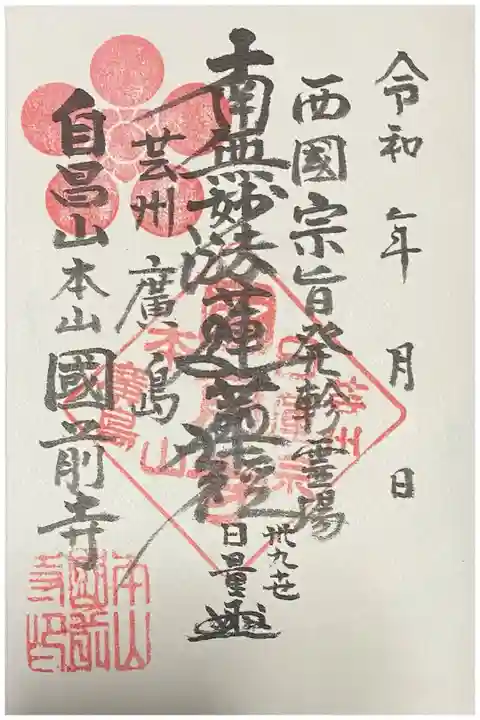 令和 年 月 日
西國宗旨発軫霊場
南無妙法蓮華経
丗九世
日量
芸州廣島
自昌山本山國前寺
芸州
本山
廣島
本山國前寺印